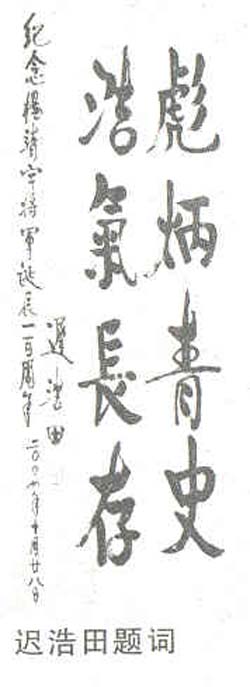 彪炳青史
浩氣長存
遲浩田
紀念楊靖宇将軍誕辰一百周年 二〇〇四年十月廿八日
迟浩田题词